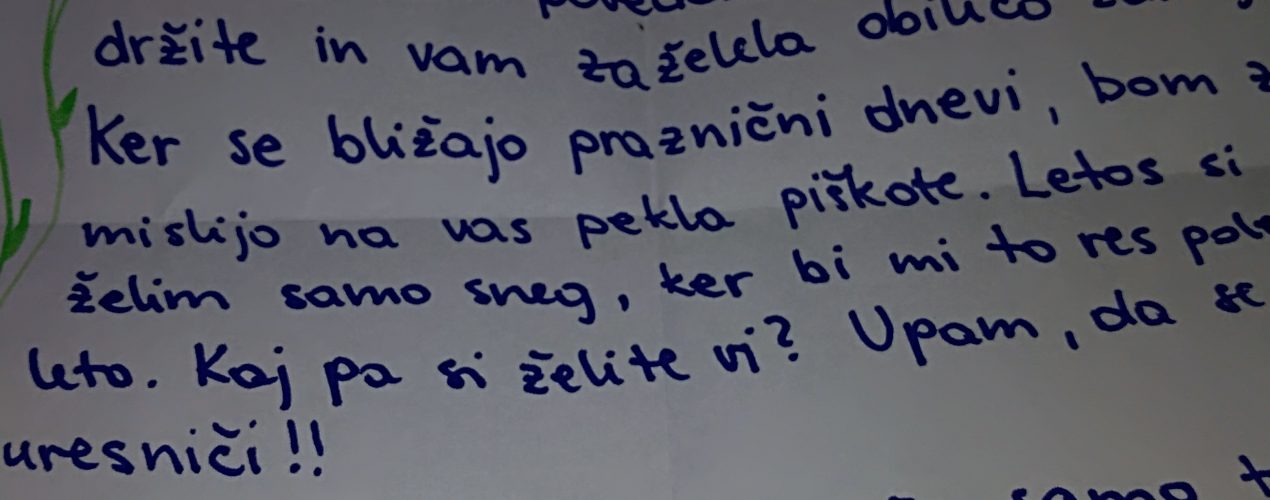 držite in vam zaželela obilico
Ker se bližajo praznični dnevi, bom z
mislijo na vas pekla piškote. Letos si
želim samo sneg, ker bi mi to res
leto. Kaj pa si želite vi? Upam, da se
uresniči!!
samo